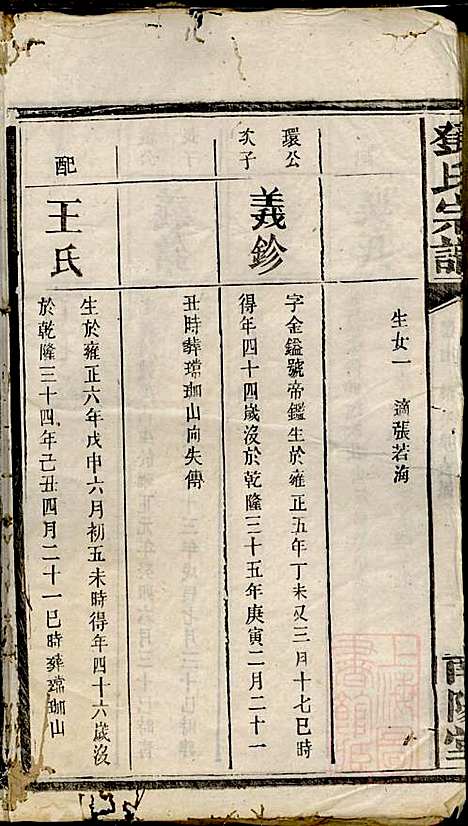 鄧氏宗譜
南陽堂
生女一　適張若海
環公
次子
義鉁
字金鎰號帝鑑生於雍正五年丁未又三月十七巳時
得年四十四歲沒於乾隆三十五年庚寅二月二十一
丑時葬瑺珈山向失傳
配
王氏
生於雍正六年戊申六月初五未時得年四十六歲沒
於乾隆三十四年己丑四月二十一巳時葬瑺珈山